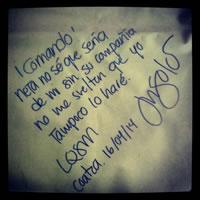 ¡Comando!
neta no sé que sería
de mi sin su compañía
no me suelten que yo
tampoco lo haré.
LQSM
16/04/14